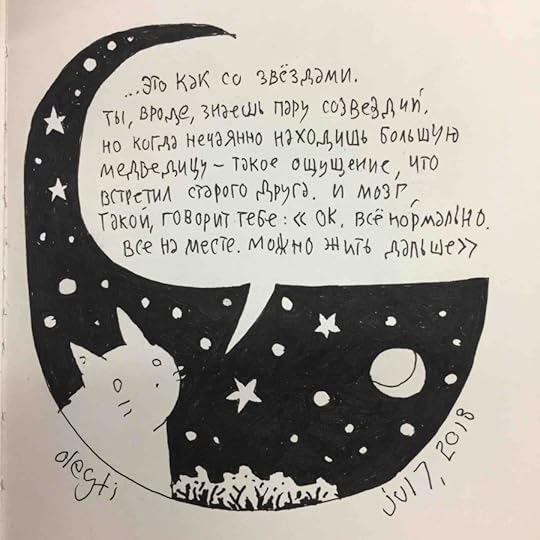 ...это как со звёздами.
ты, вроде, знаешь пару созвездий,
но когда нечаянно находишь большую
медведицу – такое ощущение, что
встретил старого друга. и мозг,
такой, говорит тебе: « ок. всё нормально.
все на месте. можно жить дальше»
olegti
jul 7, 2018